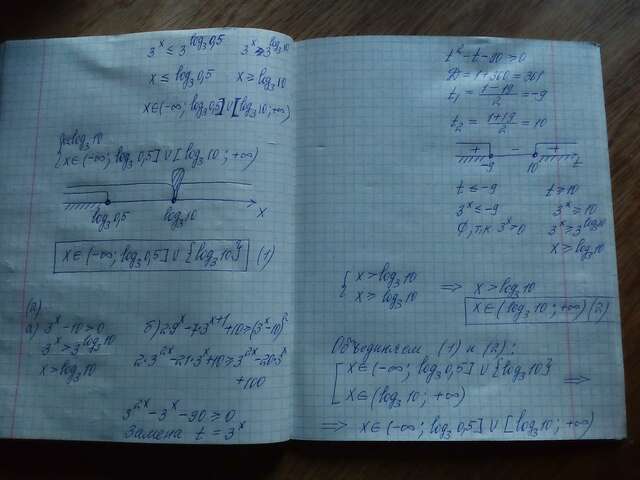 3^x ≤ 3^{log_3 0,5}    3^x ≥ 3^{log_3 10}
x ≤ log_3 0,5    x ≥ log_3 10
x∈(-∞; log_3 0,5]∪[log_3 10; +∞)
x ≤ log_3 10
{ x∈(-∞; log_3 0,5]∪[log_3 10; +∞)
log_3 0,5    log_3 10    x
x∈(-∞; log_3 0,5]∪{log_3 10} (1)
(2)
а) 3^x - 10 > 0    б) 2·9^x - 7·3^{x+1} + 10 ≥ (3^x - 10)^2
3^x > 3^{log_3 10}    2·3^{2x} - 21·3^x + 10 ≥ 3^{2x} - 20·3^x
x > log_3 10    + 100
3^{2x} - 3^x - 90 ≥ 0
Замена t = 3^x
t^2 - t - 90 ≥ 0
D = 1 + 360 = 361
t_1 = (1-19)/2 = -9
t_2 = (1+19)/2 = 10
+ - +
-9    10    t
t ≤ -9    t ≥ 10
3^x ≤ -9    3^x ≥ 10
∅, т.к 3^x > 0    3^x ≥ 3^{log_3 10}
x ≥ log_3 10
{ x > log_3 10
x ≥ log_3 10 ⟹ x > log_3 10
x∈(log_3 10; +∞) (2)
Объединяем (1) и (2):
[ x∈(-∞; log_3 0,5]∪{log_3 10}
x∈(log_3 10; +∞) ⟹
⟹ x∈(-∞; log_3 0,5]∪[log_3 10; +∞)